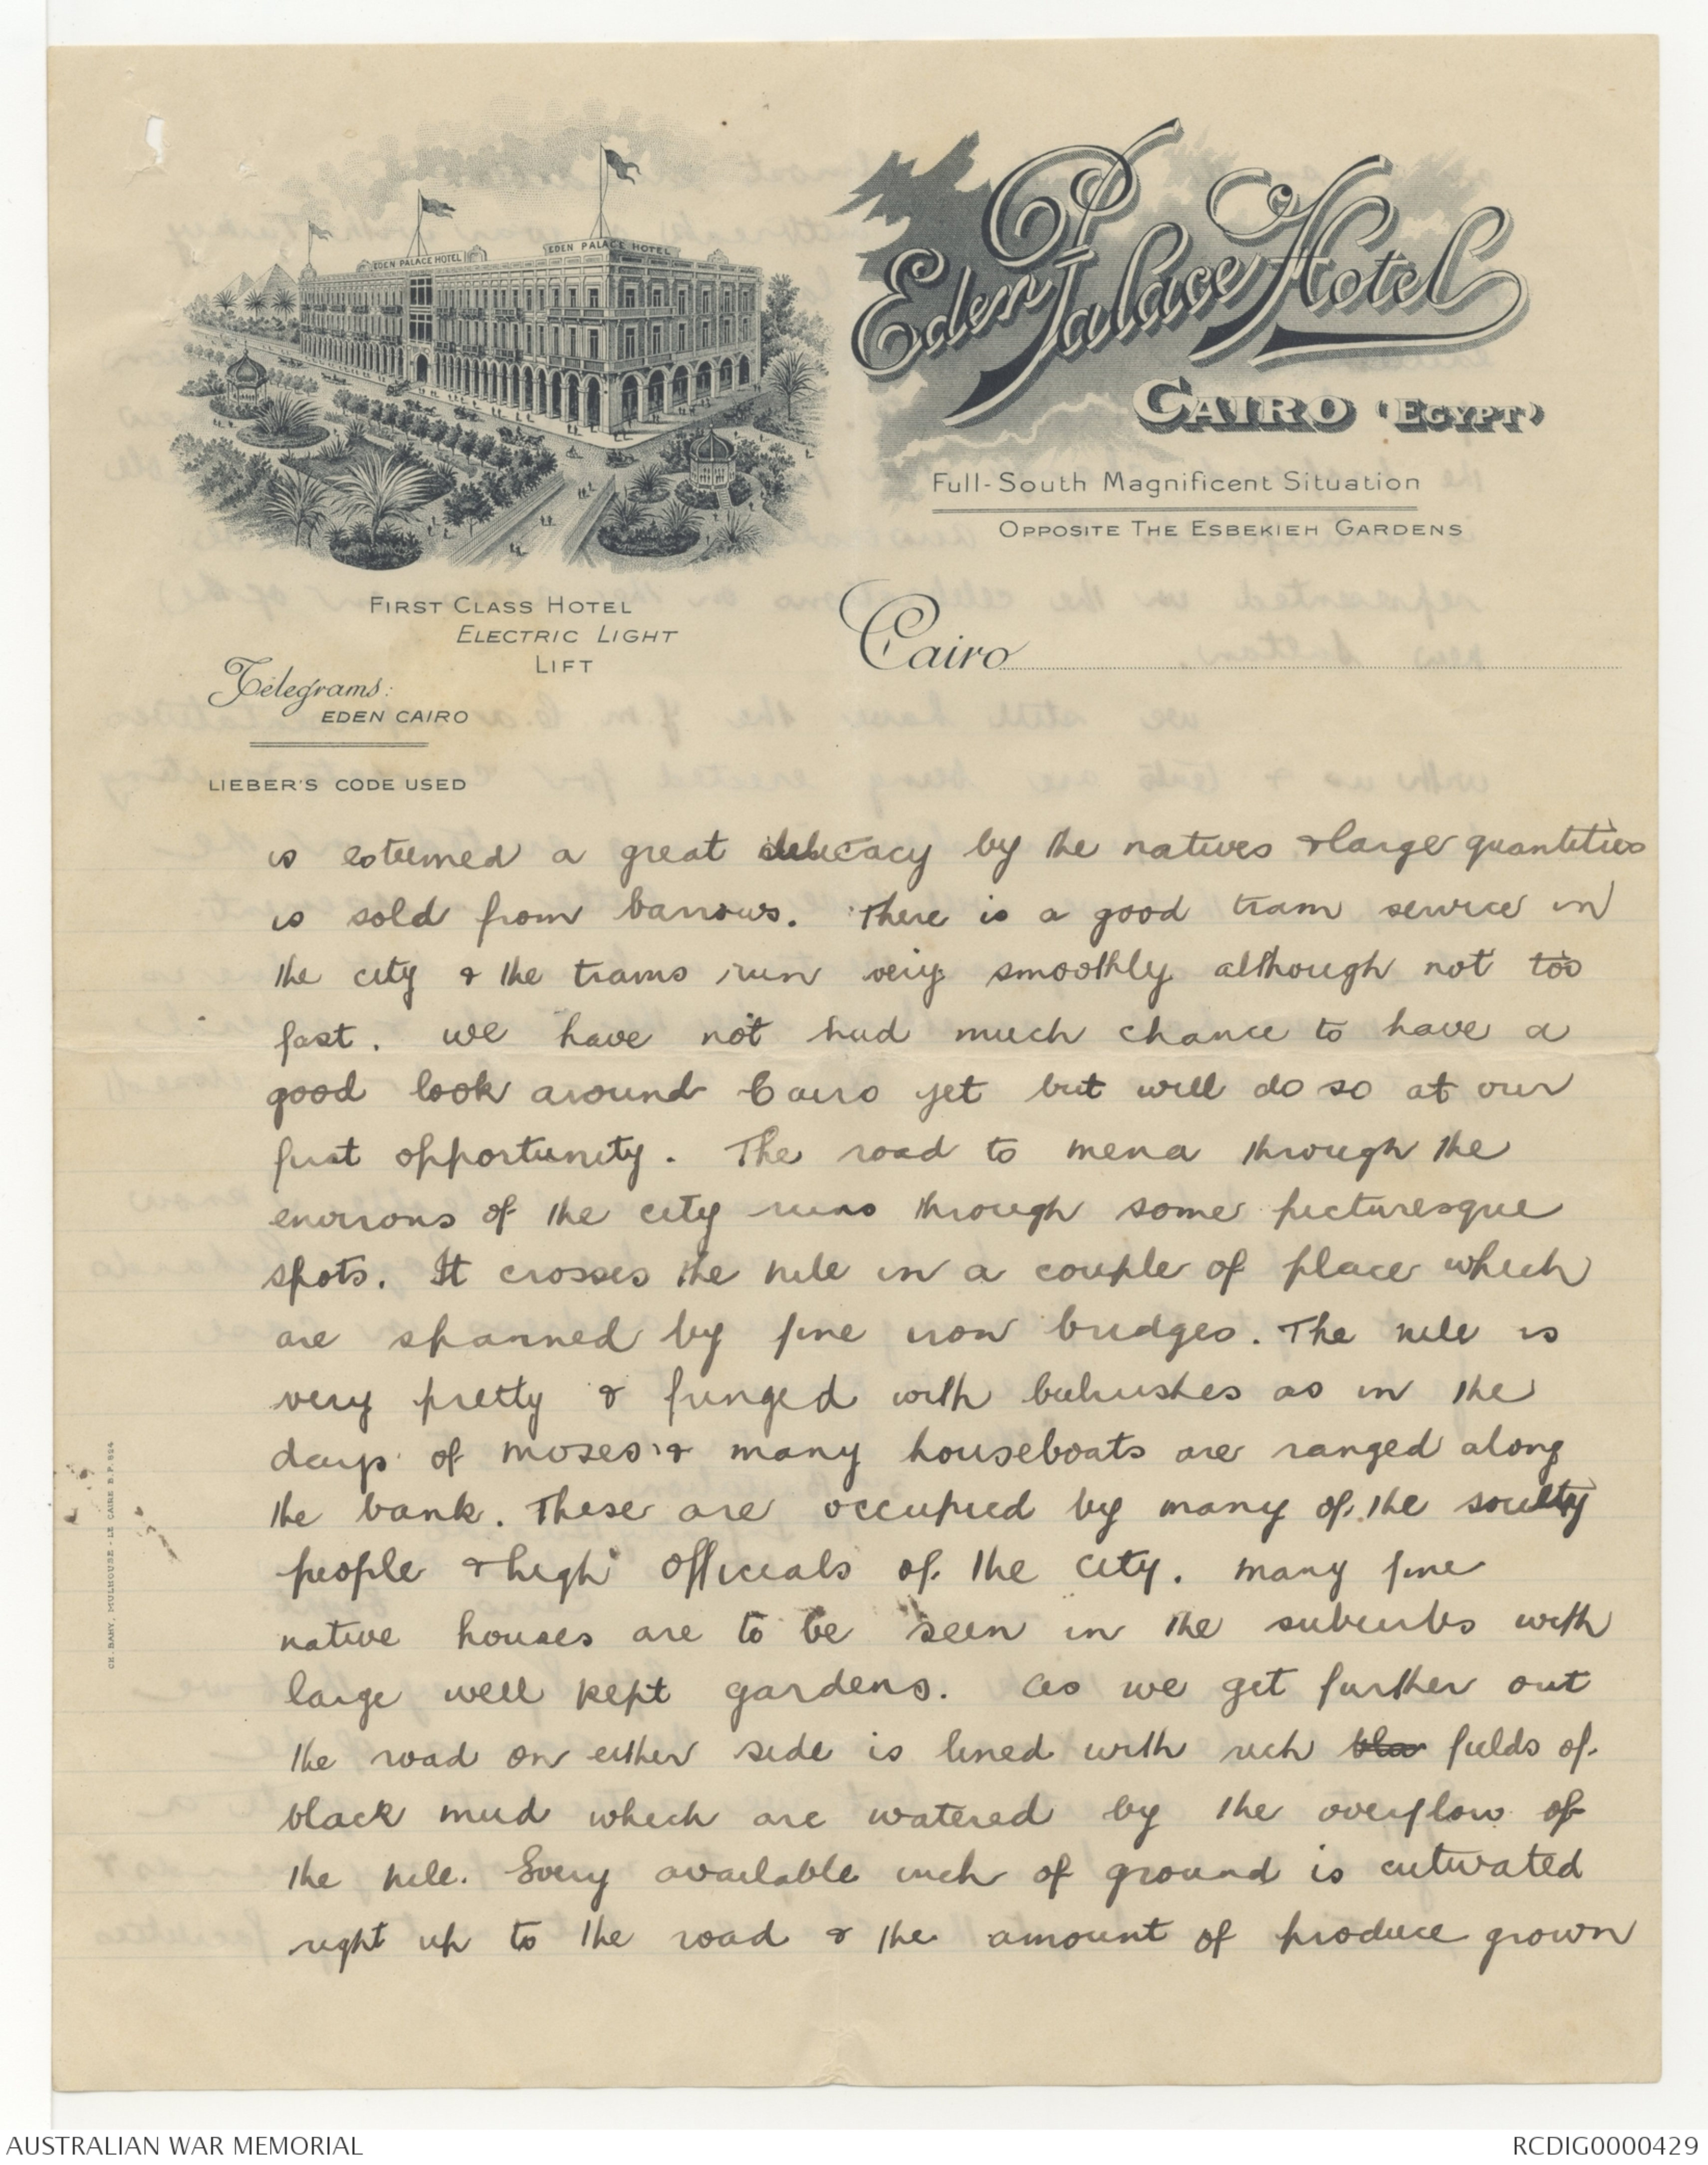 EDEN PALACE HOTEL
EDEN PALACE HOTEL
Eden Palace Hotel
CAIRO (EGYPT)
Full-South Magnificent Situation
OPPOSITE THE ESBEKIEH GARDENS
FIRST CLASS HOTEL
ELECTRIC LIGHT
LIFT
Telegrams:
EDEN CAIRO
LIEBER'S CODE USED
Cairo
is esteemed a great delicacy by the natives & large quantities
is sold from barrows. There is a good tram service in
the city & the trams run very smoothly although not too
fast. we have not had much chance to have a
good look around Cairo yet but will do so at our
first opportunity. The road to mena through the
environs of the city runs through some picturesque
spots. It crosses the nile in a couple of place which
are spanned by fine iron bridges. The nile is
very pretty & fringed with bulrushes as in the
days of moses & many houseboats are ranged along
the bank. These are occupied by many of the society
people & high officials of the city. many fine
native houses are to be seen in the suburbs with
large well kept gardens. as we get further out
the road on either side is lined with rich bla fields of
black mud which are watered by the overflow of
the nile. Every available inch of ground is cutivated
right up to the road & the amount of produce grown
CH. BANY, MULHOUSE - LE CAIRE B.P. 854
AUSTRALIAN WAR MEMORIAL
RCDIG0000429